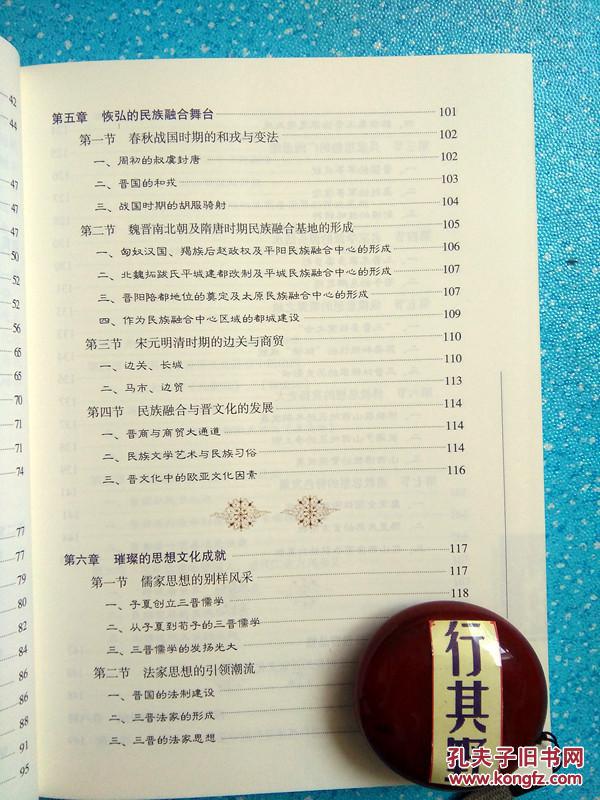 第五章 恢弘的民族融合舞台 101
第一节 春秋战国时期的和戎与变法 102
一、周初的叔虞封唐 102
二、晋国的和戎 103
三、战国时期的胡服骑射 104
第二节 魏晋南北朝及隋唐时期民族融合基地的形成 105
一、匈奴汉国、羯族后赵政权及平阳民族融合中心的形成 106
二、北魏拓跋氏平城建都改制及平城民族融合中心的形成 107
三、晋阳陪都地位的奠定及太原民族融合中心的形成 107
四、作为民族融合中心区域的都城建设 109
第三节 宋元明清时期的边关与商贸 110
一、边关、长城 110
二、马市、边贸 113
第四节 民族融合与晋文化的发展 114
一、晋商与商贸大通道 114
二、民族文学艺术与民族习俗 114
三、晋文化中的欧亚文化因素 116
第六章 璀璨的思想文化成就 117
第一节 儒家思想的别样风采 117
一、子夏创立三晋儒学 118
二、从子夏到荀子的三晋儒学
三、三晋儒学的发扬光大
第二节 法家思想的引领潮流
一、晋国的法制建设
二、三晋法家的形成
三、三晋的法家思想
42
44
47
47
47
50
52
52
56
65
65
70
71
71
74
77
77
79
80
84
86
86
88
91
95
行其
孔夫子旧书网
www.kongfz.com